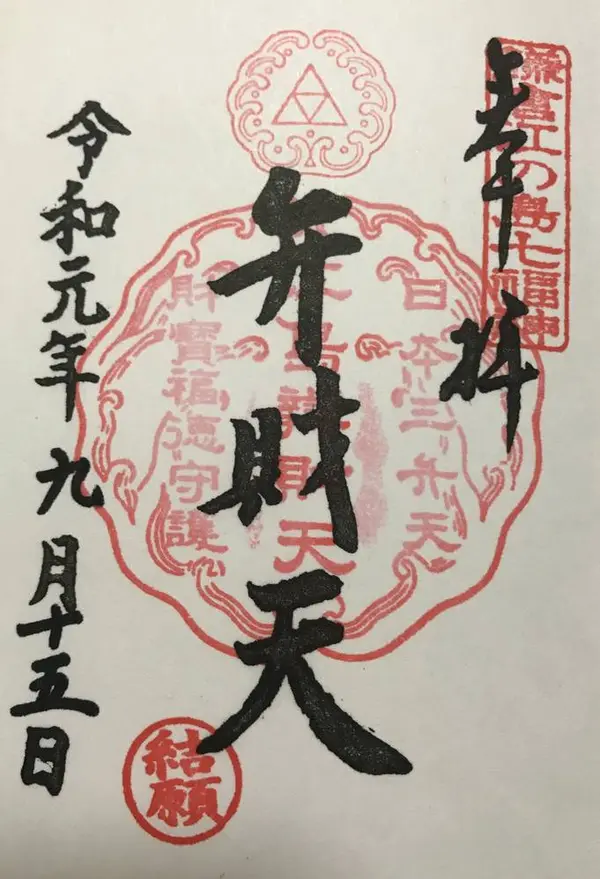 奉拝
鎌倉江の島七福神
弁財天
日本三弁天
江ノ島辨財天
財寶福徳守護
令和元年九月十五日
結願